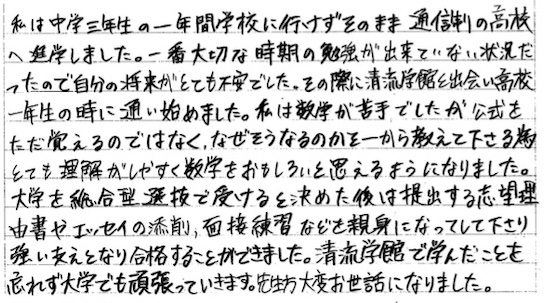 私は中学三年生の一年間学校に行けずそのまま通信制の高校
へ進学しました。一番大切な時期の勉強が出来ていない状況だ
ったので自分の将来がとても不安でした。その際に清流学館と出会い高校
一年生の時に通い始めました。私は数学が苦手でしたが公式を
ただ覚えるのではなく、なぜそうなるのかを一から教えて下さる為
とても理解がしやすく数学をおもしろいと思えるようになりました。
大学を総合型選抜で受けると決めた後は提出する志望理
由書やエッセイの添削、面接練習なども親身になってして下さり
強い支えとなり合格することができました。清流学館で学んだことを
忘れず大学でも頑張っていきます。先生方大変お世話になりました。